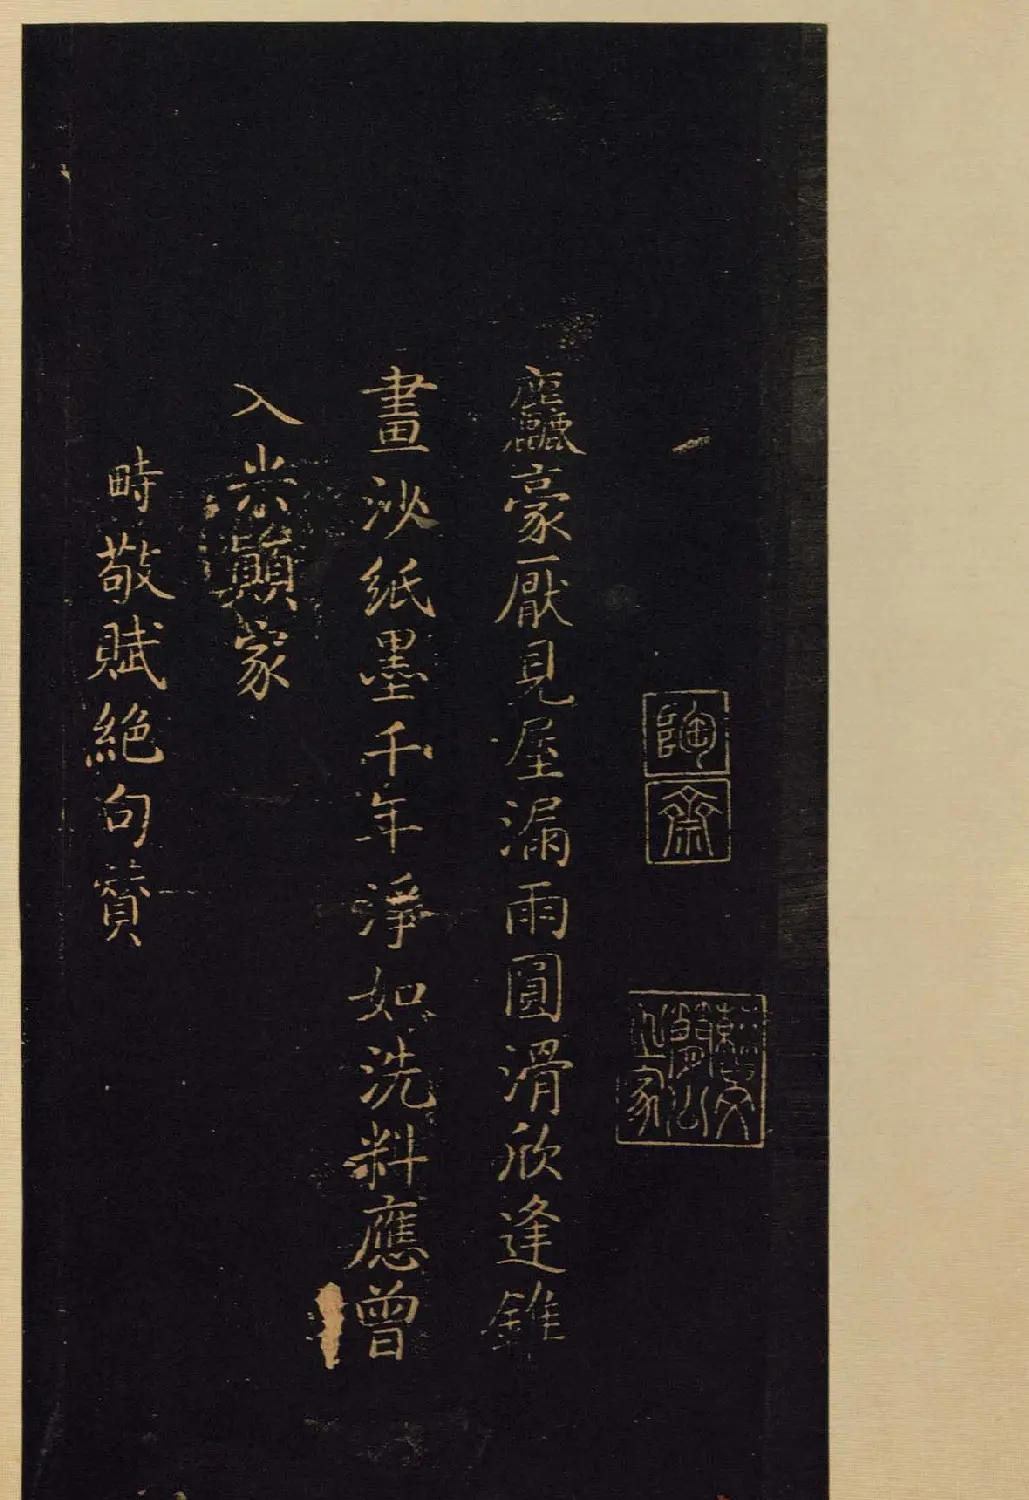 陶
齋
之家
麤豪厭見屋漏雨圓滑欣逢錐
畫沙紙墨千年淨如洗料應曾
入米顛家
畤敬賦絕句贊